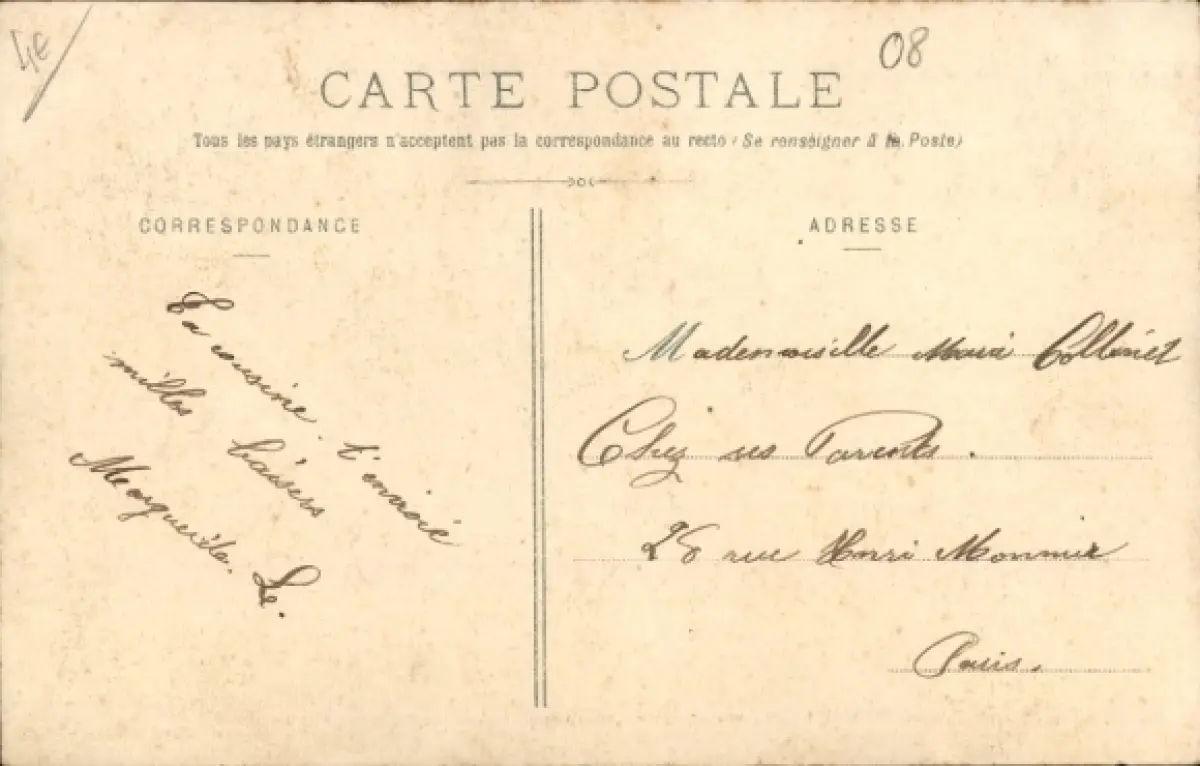 4€
08
CARTE POSTALE
Tous les pays étrangers n'acceptent pas la correspondance au recto (Se renseigner à la Poste)
CORRESPONDANCE
Ta cousine t'envoie
milles baisers
Marguerite. Le.
ADRESSE
Mademoiselle Marie
Chez ses Parents.
28 rue Henri Monnier
Paris.